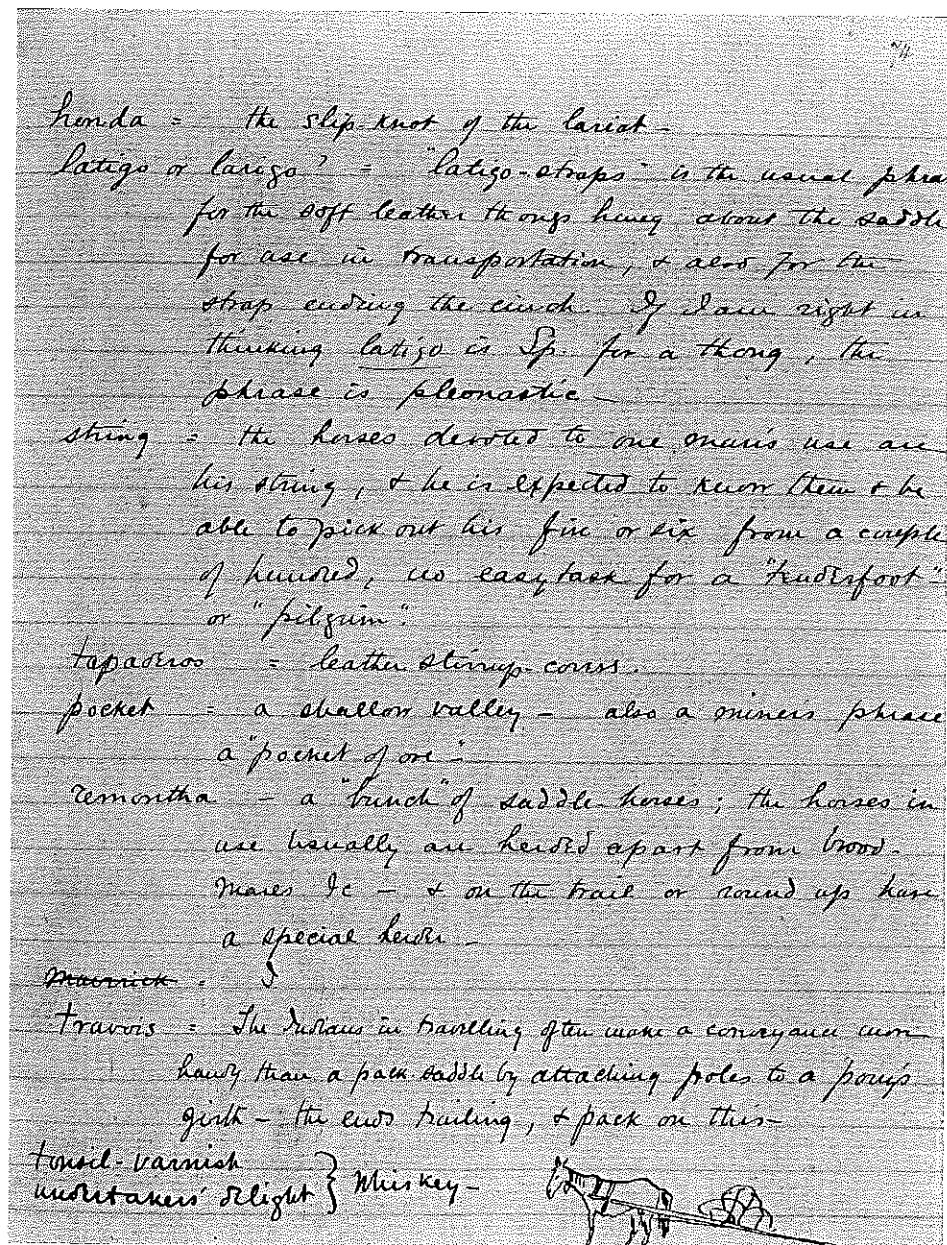 honda = the slip-knot of the lariat -
latigo or larigo? = "latigo-straps" is the usual phra
for the soft leather thongs hung about the saddle
for use in transportation, & also for the
strap ending the cinch. If I am right in
thinking latigo is Sp. for a thong, the
phrase is pleonastic -
string = the horses devoted to one man's use are
his string, & he is expected to know them & be
able to pick out his five or six from a couple
of hundred, no easy task for a "tenderfoot"
or "pilgrim".
tapaderos = leather stirrup-covers.
pocket = a shallow valley - also a miner's phrase
a "pocket of ore" -
remontha - a "bunch" of saddle horses; the horses in
use usually are herded apart from brood-
mares &c - & on the trail or round up have
a special herder -
Maverick =
travois = The Indians in travelling often make a conveyance more
handy than a pack-saddle by attaching poles to a pony's
girth - the ends trailing, & pack on this -
tonsil-varnish
undertakers' delight } Whiskey -